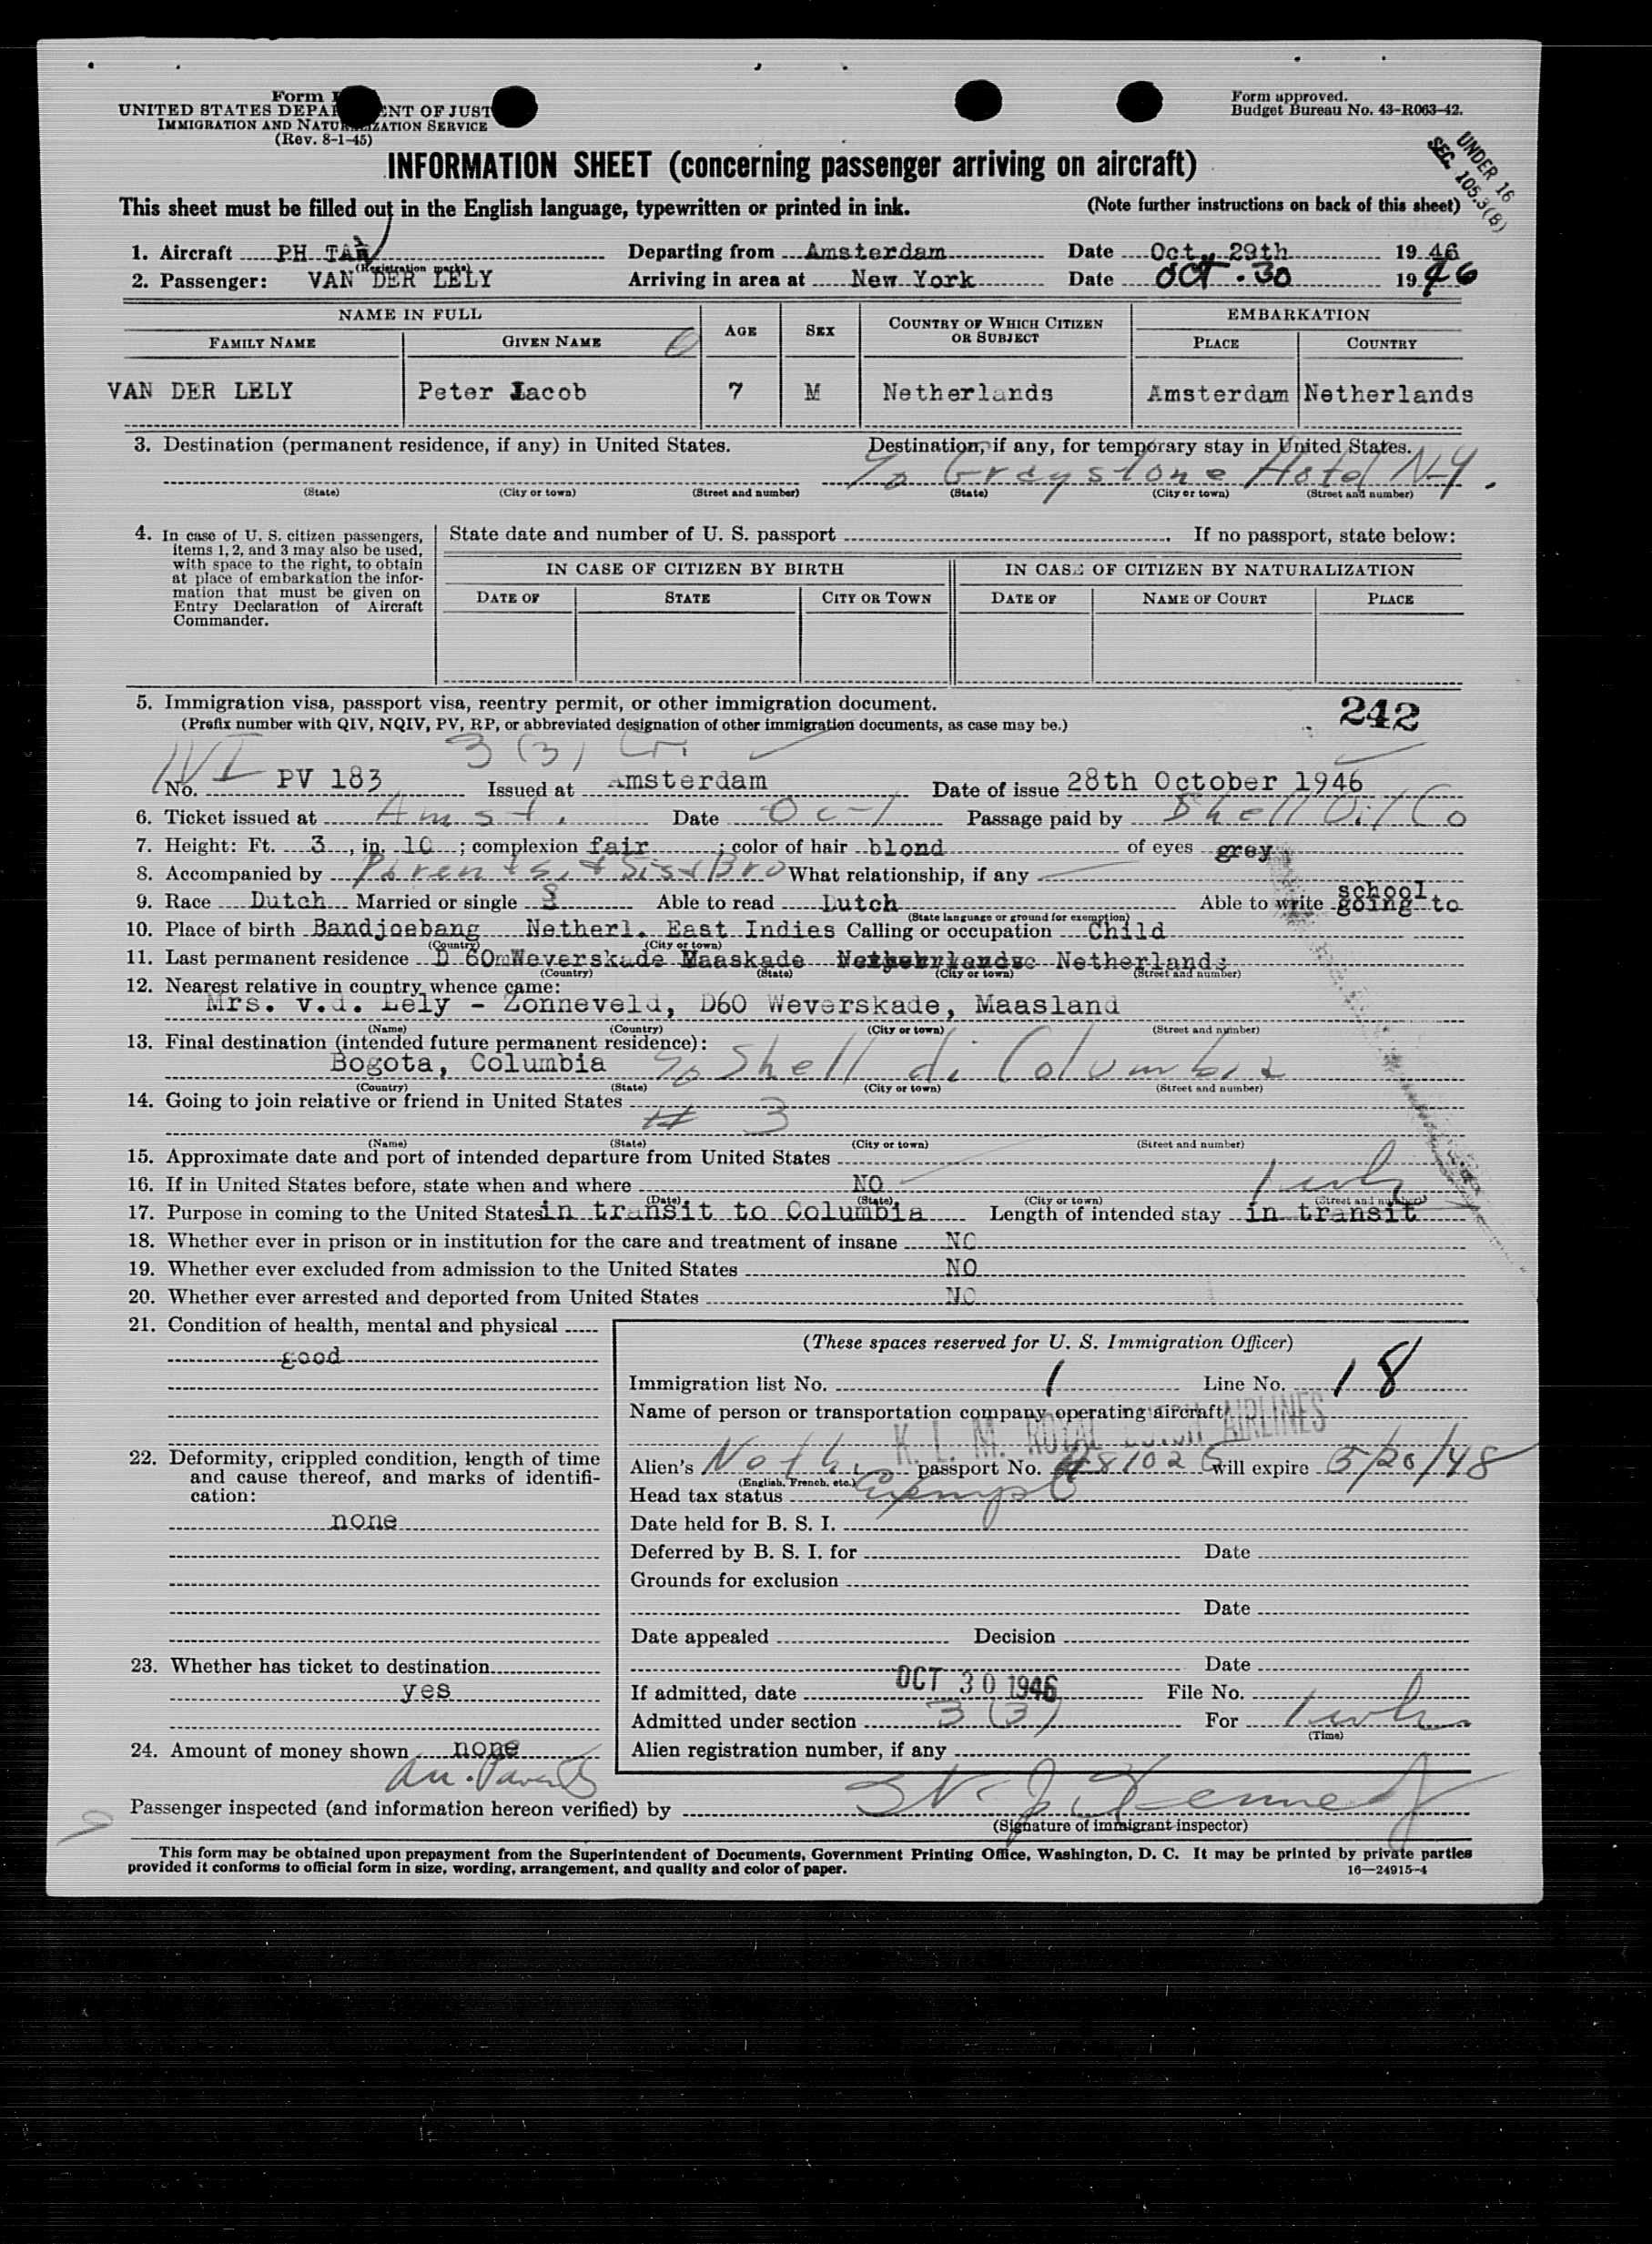 Form I
UNITED STATES DEPARTMENT OF JUST
IMMIGRATION AND NATURALIZATION SERVICE
(Rev. 8-1-45)
Form approved.
Budget Bureau No. 43-R063-42.
UNDER 16
SEC. 105.3(B)
INFORMATION SHEET (concerning passenger arriving on aircraft)
This sheet must be filled out in the English language, typewritten or printed in ink. (Note further instructions on back of this sheet)
1. Aircraft PH TAR Departing from Amsterdam Date Oct. 29th 1946
(Registration marks)
2. Passenger: VAN DER LELY Arriving in area at New York Date OCT. 30 1946
NAME IN FULL AGE SEX COUNTRY OF WHICH CITIZEN OR SUBJECT EMBARKATION
FAMILY NAME GIVEN NAME PLACE COUNTRY
VAN DER LELY Peter Jacob 7 M Netherlands Amsterdam Netherlands
3. Destination (permanent residence, if any) in United States. Destination, if any, for temporary stay in United States.
c/o Greystone Hotel N.Y.
(State) (City or town) (Street and number) (State) (City or town) (Street and number)
4. In case of U. S. citizen passengers, items 1, 2, and 3 may also be used, with space to the right, to obtain at place of embarkation the information that must be given on Entry Declaration of Aircraft Commander.
State date and number of U. S. passport . If no passport, state below:
IN CASE OF CITIZEN BY BIRTH IN CASE OF CITIZEN BY NATURALIZATION
DATE OF STATE CITY OR TOWN DATE OF NAME OF COURT PLACE
5. Immigration visa, passport visa, reentry permit, or other immigration document. 242
(Prefix number with QIV, NQIV, PV, RP, or abbreviated designation of other immigration documents, as case may be.)
3 (3)
No. PV 183 Issued at Amsterdam Date of issue 28th October 1946
6. Ticket issued at Amst. Date Oct Passage paid by Shell Oil Co
7. Height: Ft. 3, in. 10; complexion fair; color of hair blond of eyes grey
8. Accompanied by Parents, + Sis + Bro What relationship, if any
9. Race Dutch Married or single S Able to read Dutch Able to write going to school
(State language or ground for exemption)
10. Place of birth Bandjoebang Netherl. East Indies Calling or occupation Child
(Country) (City or town)
11. Last permanent residence D 60 Weverskade Maaskade Netherlands
(Country) (State) (City or town) (Street and number)
12. Nearest relative in country whence came:
Mrs. v.d. Lely - Zonneveld, D60 Weverskade, Maasland
(Name) (Country) (City or town) (Street and number)
13. Final destination (intended future permanent residence):
Bogota, Columbia c/o Shell di Columbia
(Country) (State) (City or town) (Street and number)
14. Going to join relative or friend in United States
# 3
(Name) (State) (City or town) (Street and number)
15. Approximate date and port of intended departure from United States
16. If in United States before, state when and where NO 1 wk
(Date) (State) (City or town) (Street and number)
17. Purpose in coming to the United States in transit to Columbia Length of intended stay in transit
18. Whether ever in prison or in institution for the care and treatment of insane NO
19. Whether ever excluded from admission to the United States NO
20. Whether ever arrested and deported from United States NO
21. Condition of health, mental and physical
good
(These spaces reserved for U. S. Immigration Officer)
Immigration list No. 1 Line No. 18
Name of person or transportation company operating aircraft
K. L. M. ROYAL DUTCH AIRLINES
22. Deformity, crippled condition, length of time and cause thereof, and marks of identification:
none
Alien's Neth. passport No. will expire 5/20/48
(English, French, etc.)
Head tax status Exempt
Date held for B. S. I.
Deferred by B. S. I. for Date
Grounds for exclusion
Date
Date appealed Decision
23. Whether has ticket to destination
yes
Date
If admitted, date OCT 30 1946 File No.
Admitted under section 3 (3) For 1 wk
(Time)
24. Amount of money shown none
Alien registration number, if any
Passenger inspected (and information hereon verified) by
(Signature of immigrant inspector)
This form may be obtained upon prepayment from the Superintendent of Documents, Government Printing Office, Washington, D. C. It may be printed by private parties
provided it conforms to official form in size, wording, arrangement, and quality and color of paper. 16—24915-4